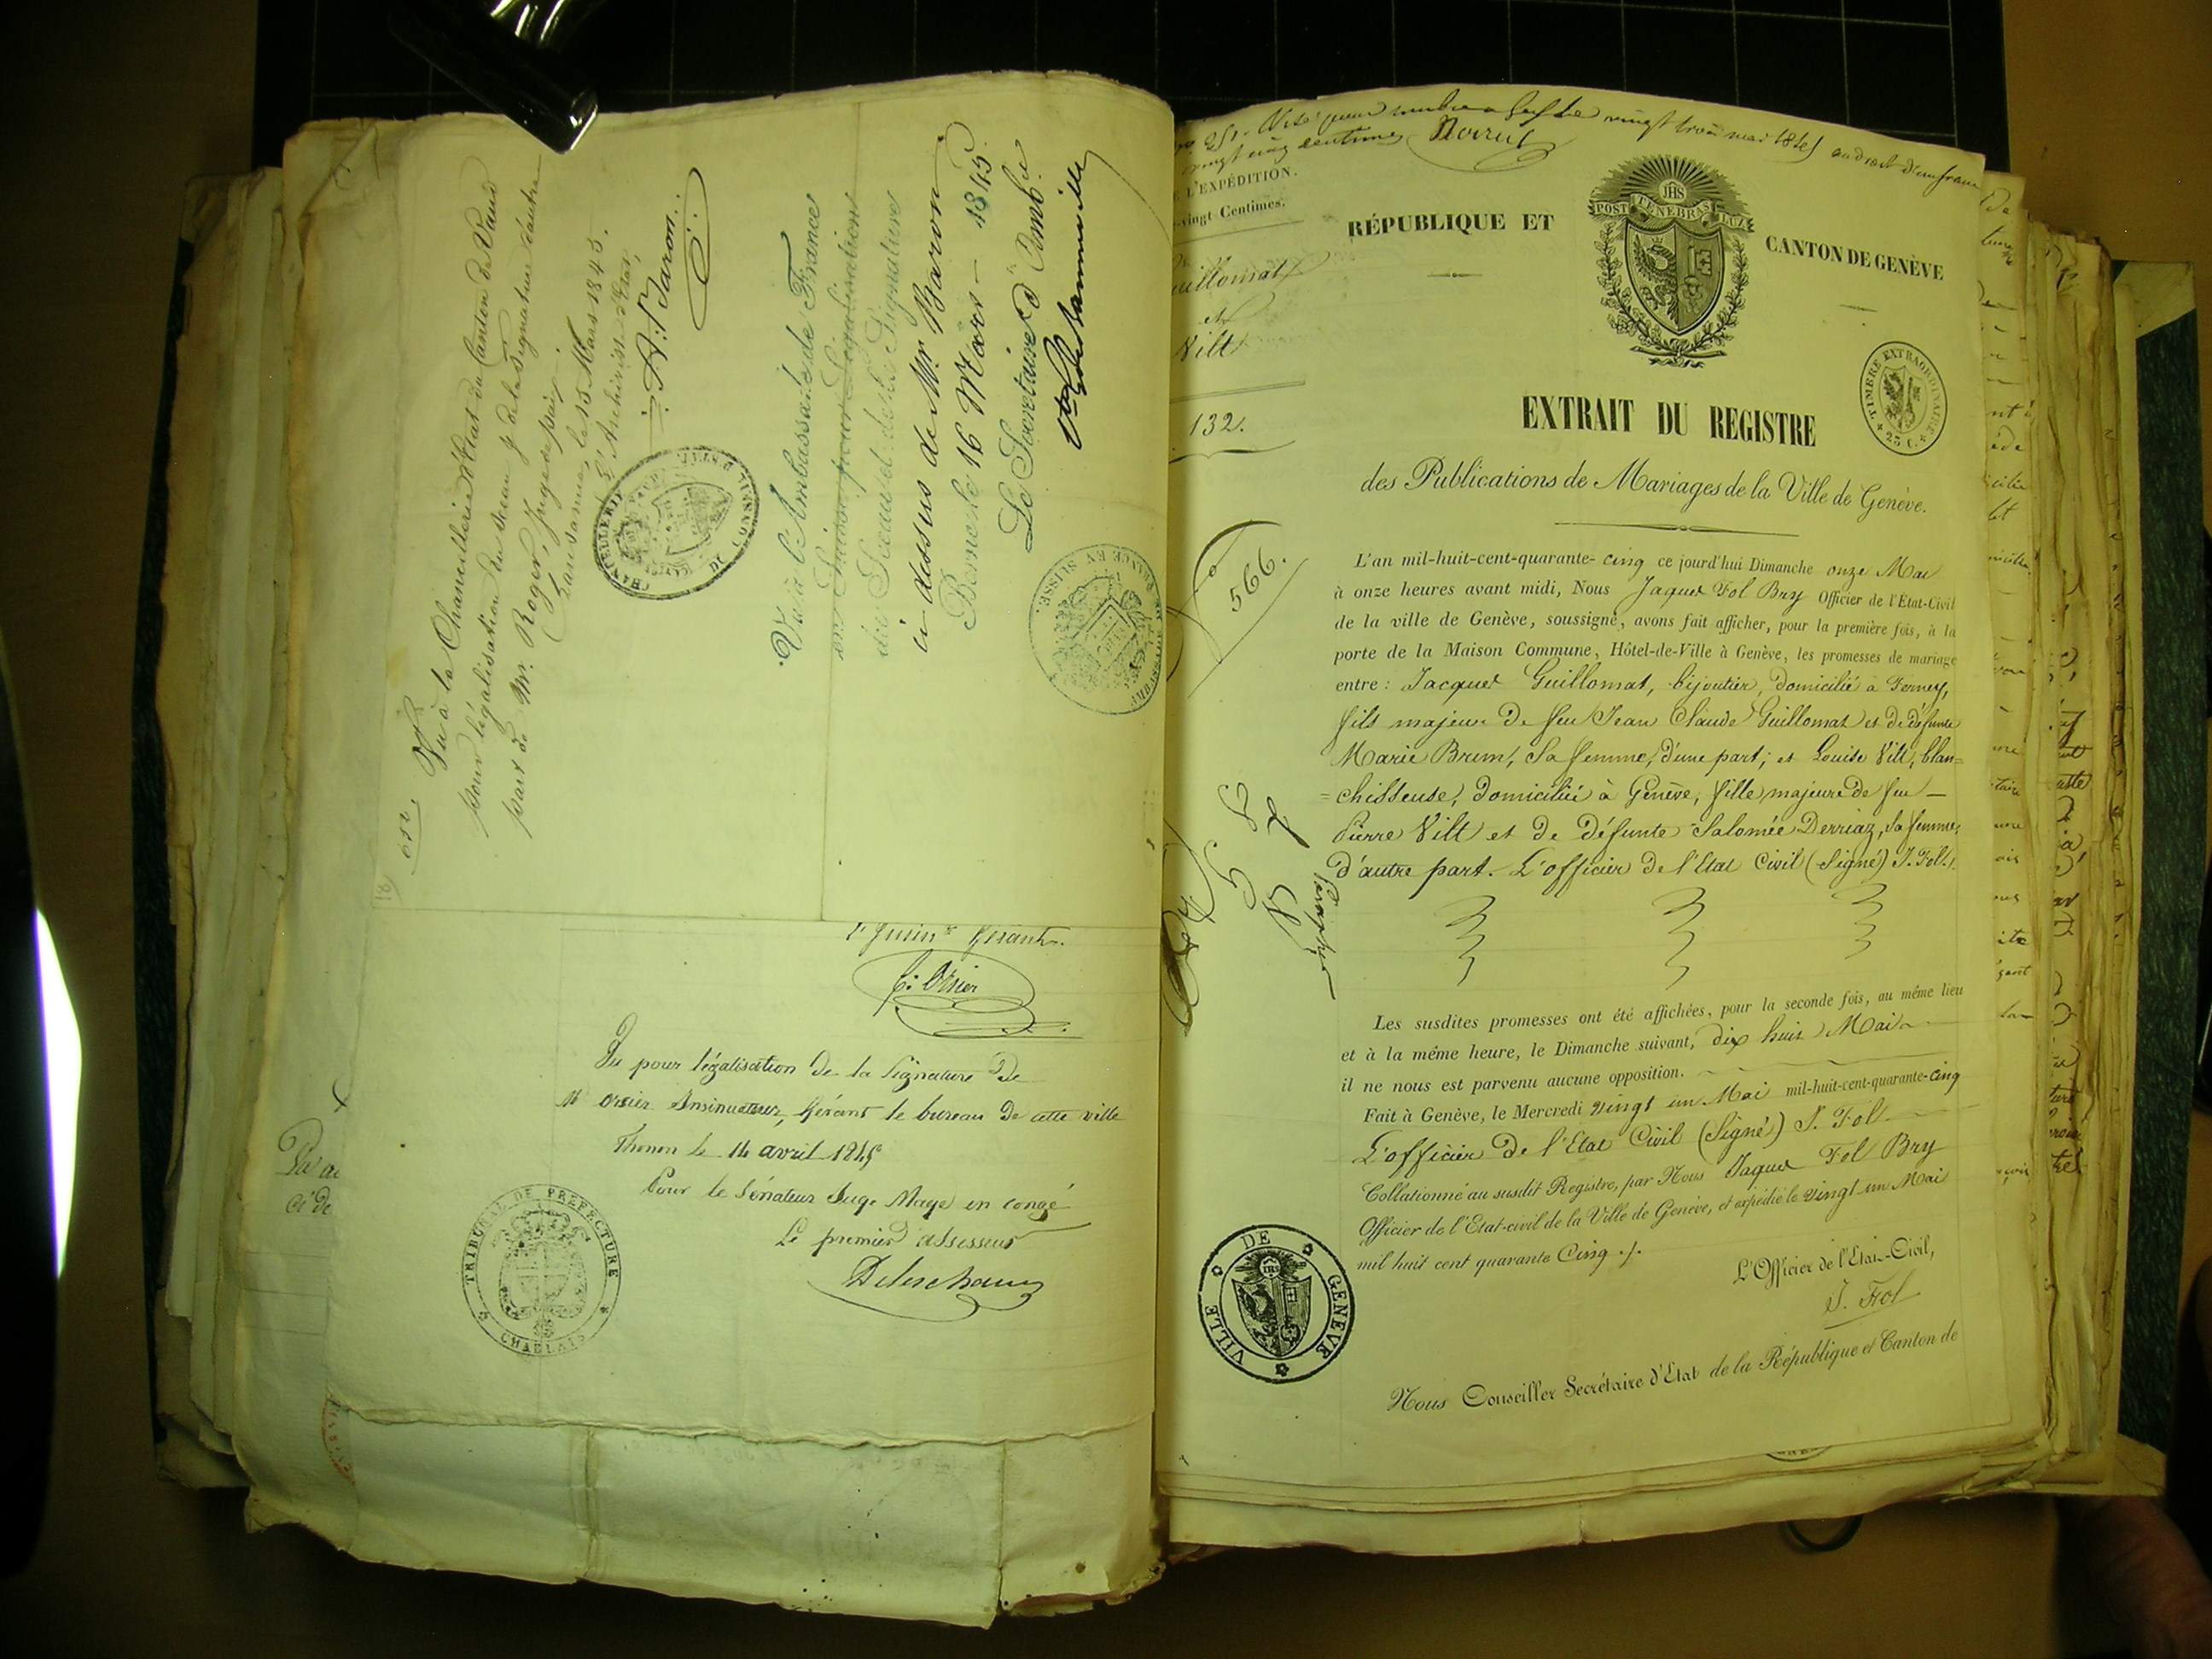 Vu à la Chancellerie d'Etat du Canton de Vaud
pour légalisation du Sceau & de la Signature d'autre
part de Mr. Roger, Juge de paix,
Lausanne, le 15 Mars 1845.
L'Archiviste d'Etat,
A. Baron.
CHANCELLERIE DU CONSEIL
Vu à l'Ambassade de France
en Suisse pour Légalisation
du Sceau et de la Signature
ci-dessus de Mr. Baron
Berne le 16 Mars - 1845.
Le Secrétaire d'Amb.de
FRANCE EN SUISSE
gérant.
Vu pour légalisation de la Signature de
Mr Insinuateur, Gérant le bureau de cette ville
Thonon le 14 avril 1845
Pour le Sénateur Juge Maje en congé
Le premier assesseur
Deleschaux
TRIBUNAL DE PREFECTURE
CHABLAIS
vingt trois mai 1845 au droit d'un franc
vingt cinq centimes
L'EXPÉDITION.
vingt Centimes.
Guillomat
et
Vilt
132.
RÉPUBLIQUE ET CANTON DE GENÈVE
JHS
POST TENEBRAS LUX
TIMBRE EXTRAORDINAIRE
25 C.
EXTRAIT DU REGISTRE
des Publications de Mariages de la Ville de Genève.
566.
L'an mil-huit-cent-quarante-cinq ce jourd'hui Dimanche onze Mai
à onze heures avant midi, Nous Jaques Fol Bry Officier de l'État-Civil
de la ville de Genève, soussigné, avons fait afficher, pour la première fois, à la
porte de la Maison Commune, Hôtel-de-Ville à Genève, les promesses de mariage
entre: Jacques Guillomat, bijoutier, domicilié à Ferney,
fils majeur de feu Jean Claude Guillomat et de défunte
Marie Brun, sa femme, d'une part; et Louise Vilt, blan=
=chisseuse, domiciliée à Genève, fille majeure de feu —
Pierre Vilt et de défunte Salomée Derriaz, sa femme,
d'autre part. L'officier de l'Etat Civil (Signé) J. Fol.
Les susdites promesses ont été affichées, pour la seconde fois, au même lieu
et à la même heure, le Dimanche suivant, dix huit Mai
il ne nous est parvenu aucune opposition.
Fait à Genève, le Mercredi vingt un Mai mil-huit-cent-quarante-cinq
L'officier de l'Etat Civil (Signé) J. Fol
Collationné au susdit Registre, par Nous Jaques Fol Bry
Officier de l'Etat-civil de la Ville de Genève, et expédié le vingt un Mai
mil huit cent quarante Cinq ./.
L'Officier de l'Etat-Civil,
J. Fol
VILLE DE GENEVE
Nous Conseiller Secrétaire d'Etat de la République et Canton de